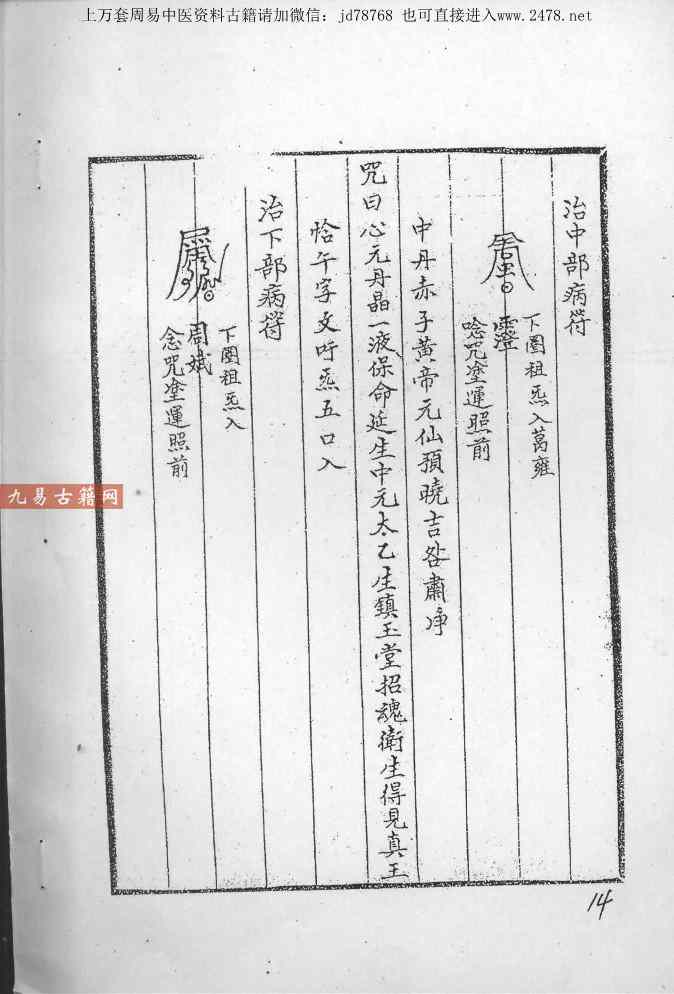 上万套周易中医资料古籍请加微信：jd78768 也可直接进入www.2478.net
治中部病符
下圈祖炁入萬雍
靈澄
唸咒塗運照前
中丹赤子黃帝元仙預曉吉咎肅净
咒曰心元丹晶一液保命延生中元太乙生鎮玉堂招魂衛生得見真王
恰午字文吁炁五口入
治下部病符
下圈祖炁入
周斌
念咒塗運照前
九易古籍网
14